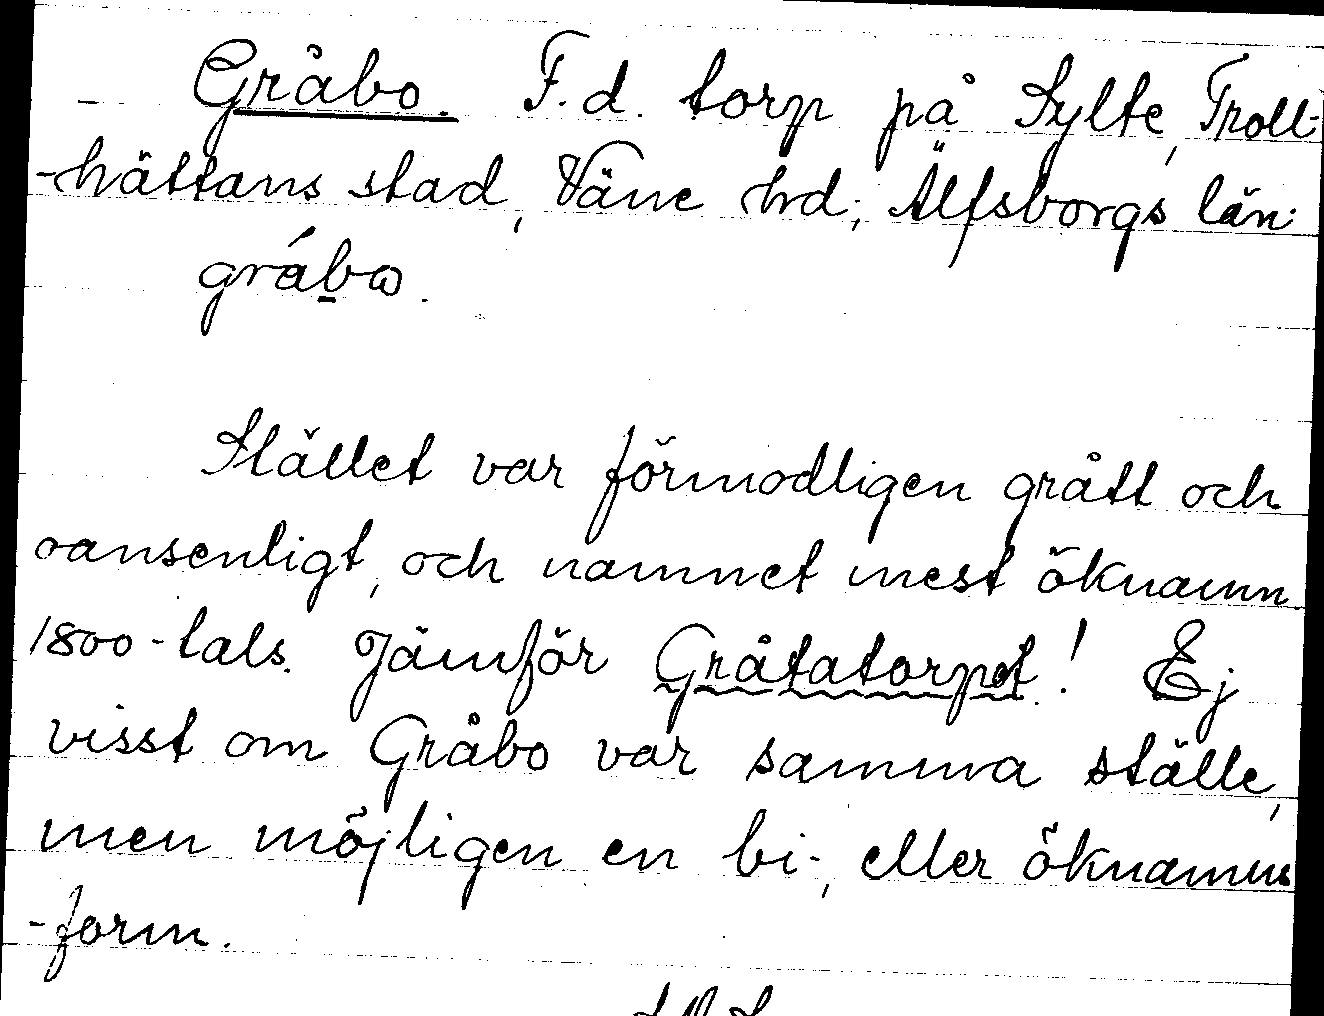 Gråbo. F.d. torp på Sylte, Troll-
-hättans stad, Väne hrd; Älfsborgs län.
gråbω.
Stället var förmodligen grått och
oansenligt, och namnet mest öknamn
1800-tals. Jämför Gråtatorpet! Ej
visst om Gråbo var samma ställe,
men möjligen en bi-, eller öknamns
-form.